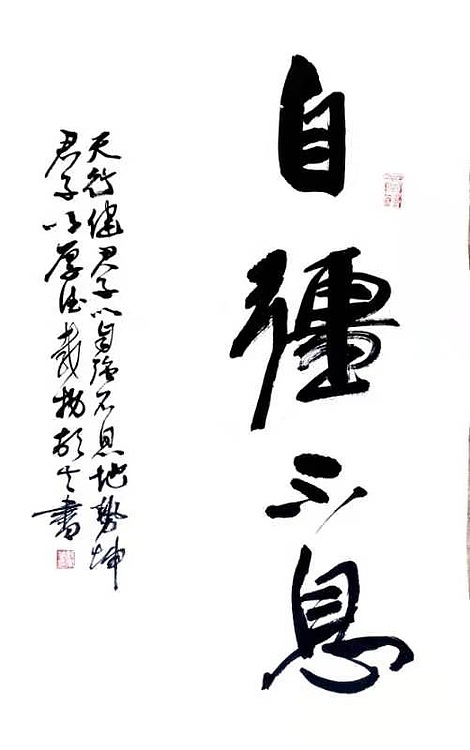 自彊不息
天行健君子以自强不息地勢坤
君子以厚德載物書